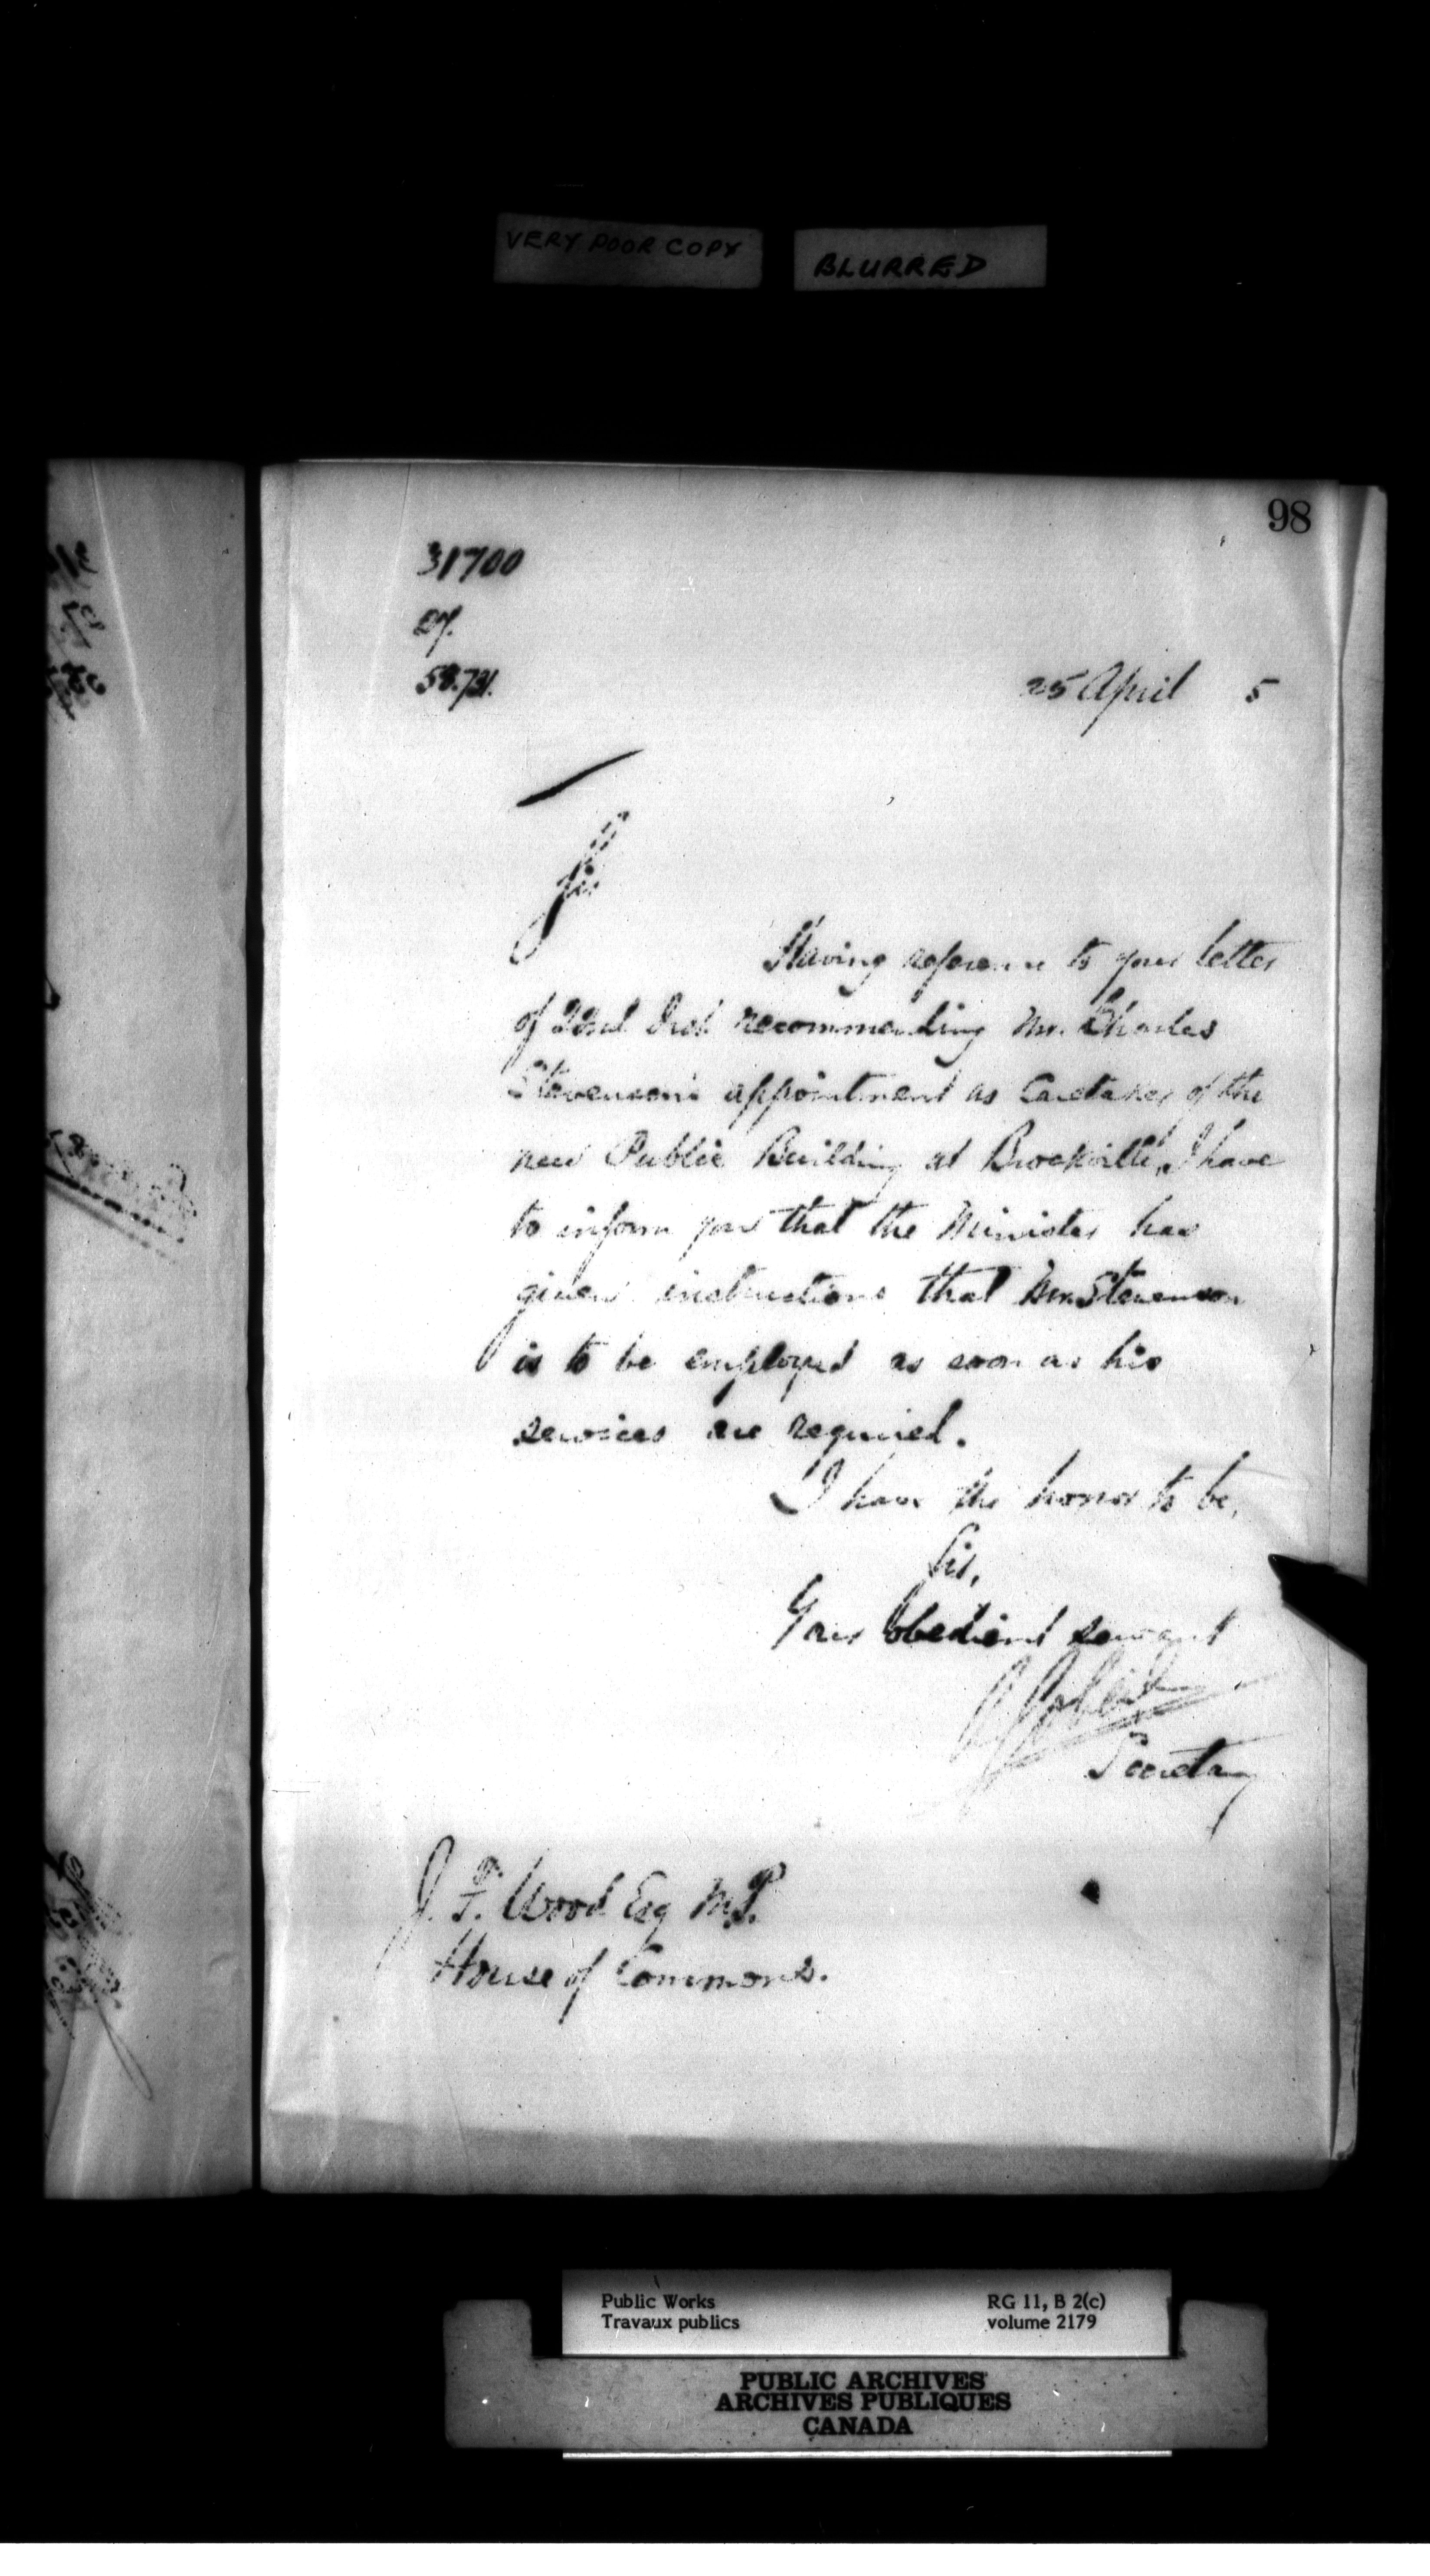 VERY POOR COPY
BLURRED
98
31700
58.731.
25 April 5
Sir
Having reference to your letter
of 22nd Inst recommending Mr. Charles
Stevenson's appointment as Caretaker of the
new Public Building at Brockville, I have
to inform you that the Minister has
given instructions that Mr. Stevenson
is to be employed as soon as his
services are required.
I have the honor to be,
Sir,
Your obedient servant
Secretary
J. F. Wood Esq M.P.
House of Commons.
Public Works
Travaux publics
RG 11, B 2(c)
volume 2179
PUBLIC ARCHIVES
ARCHIVES PUBLIQUES
CANADA